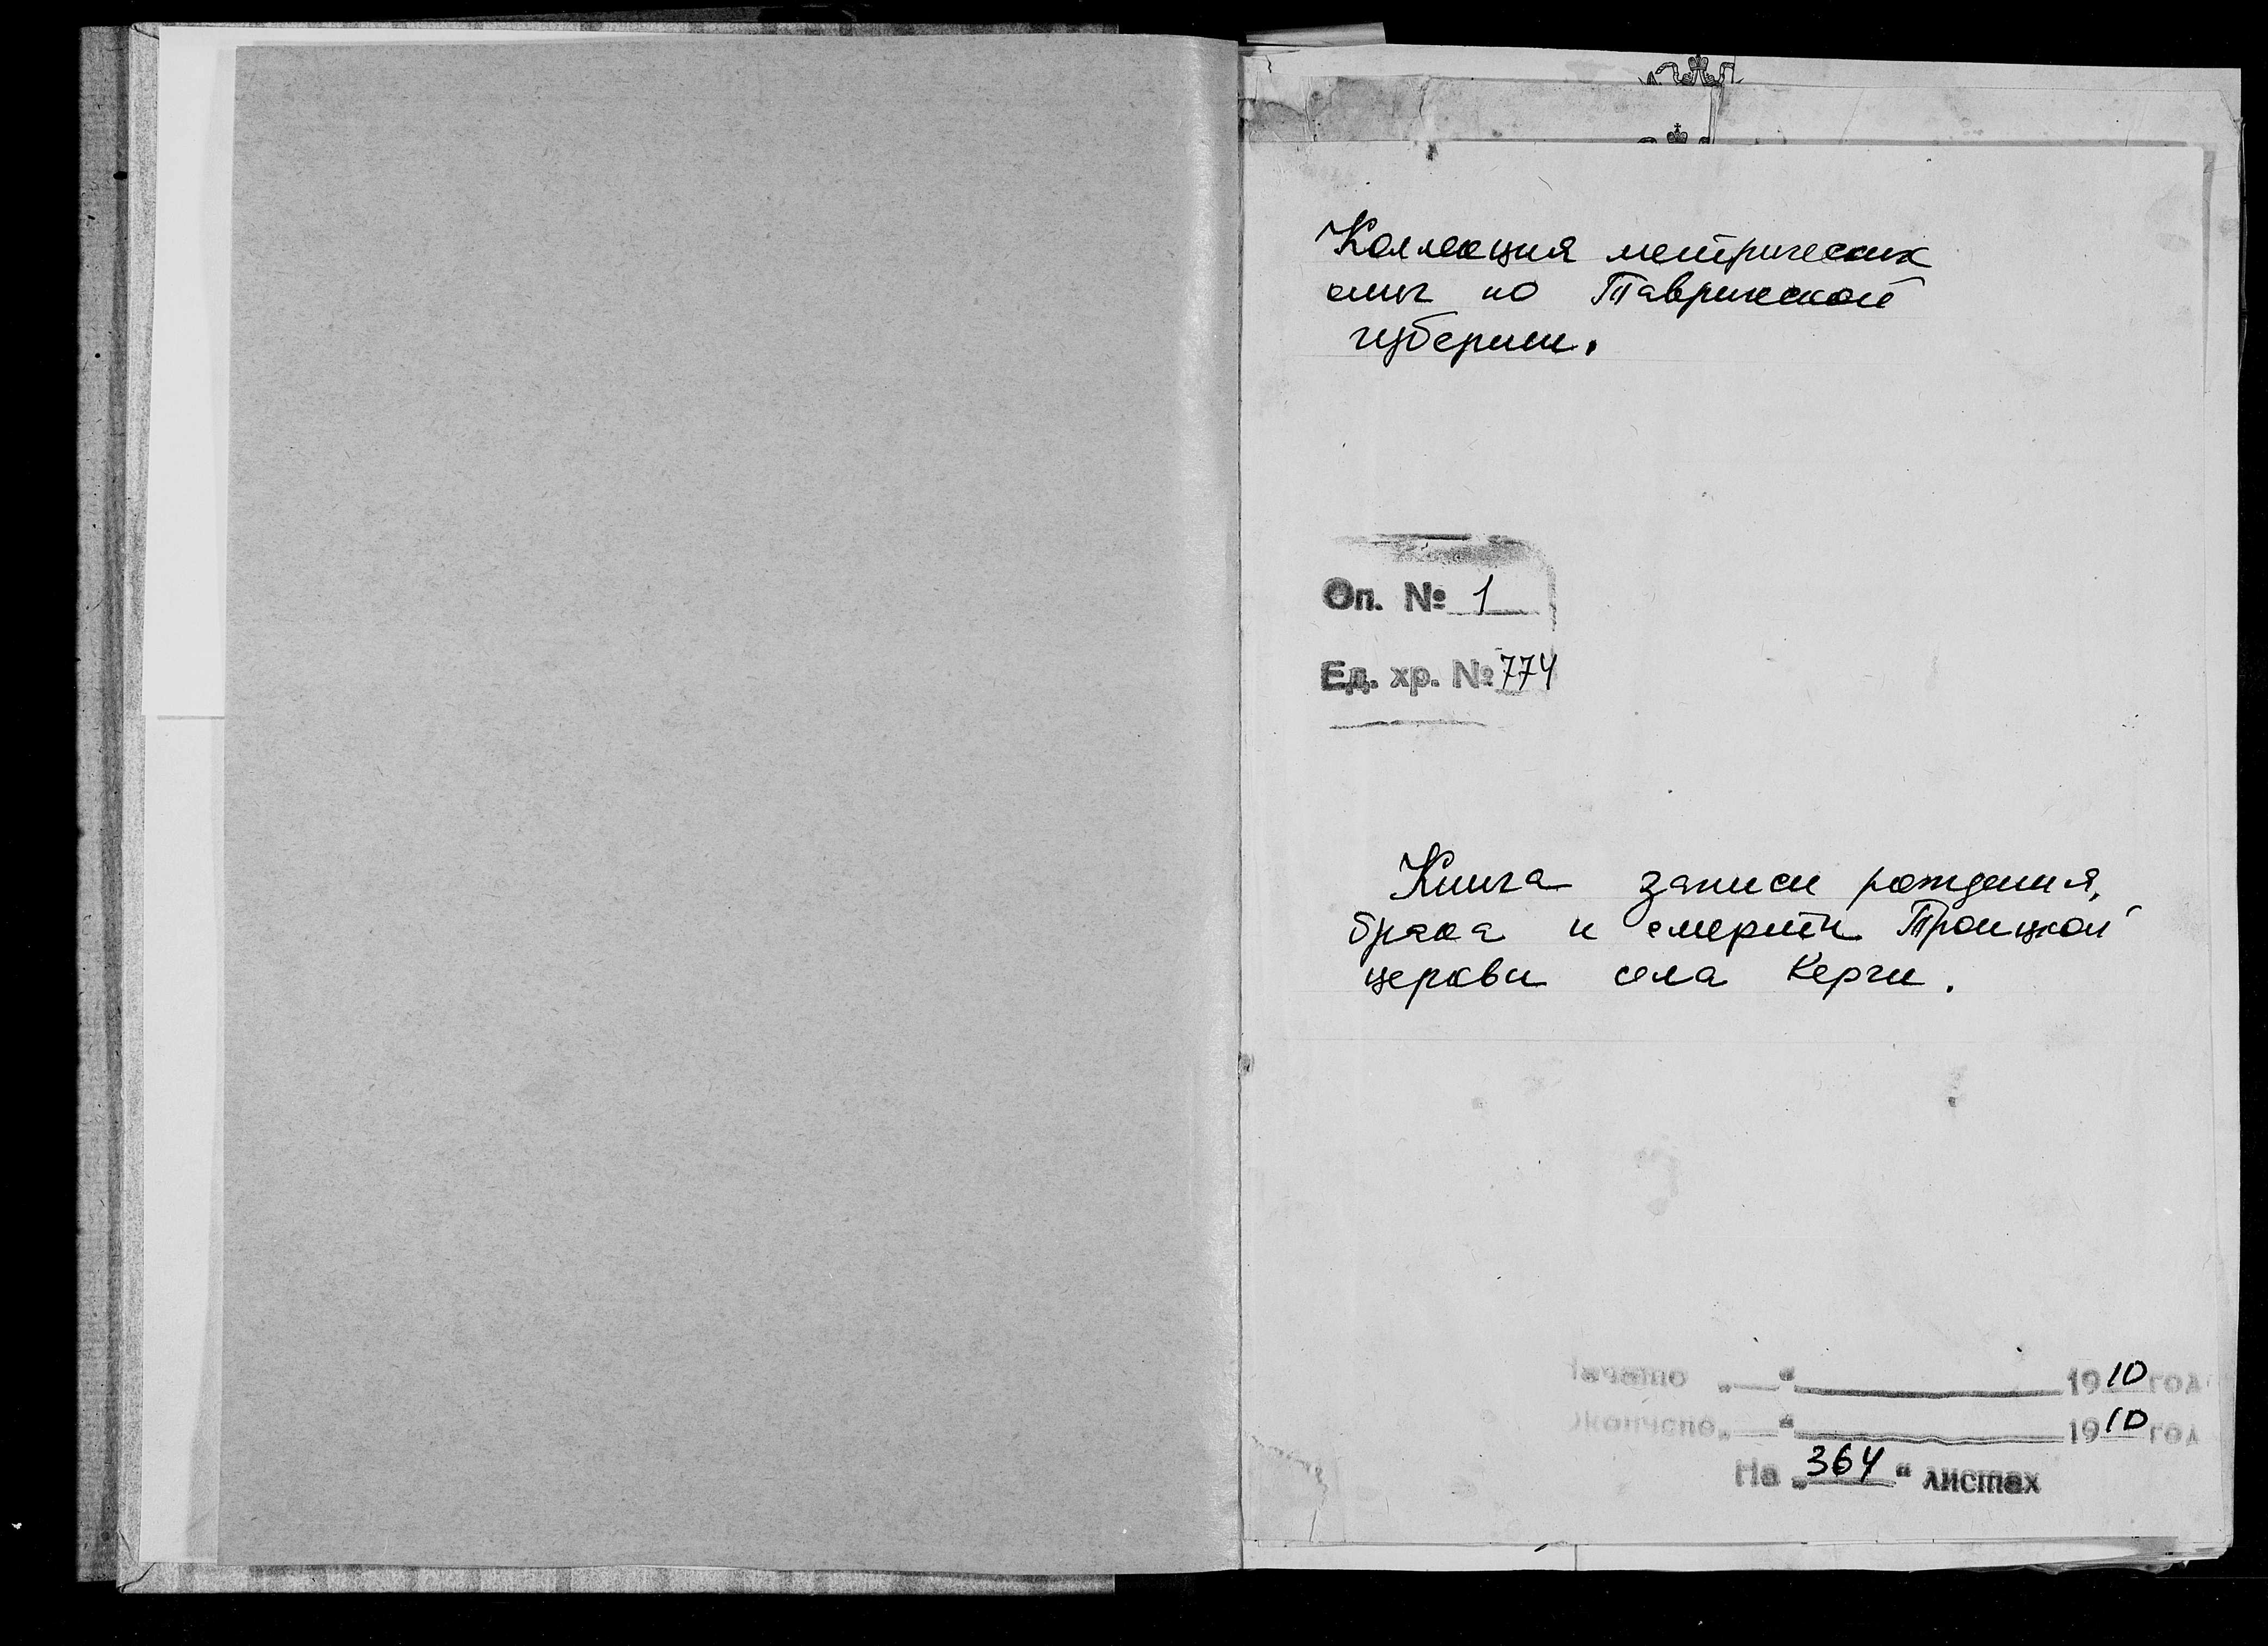 Коллекция метрических
книг по Таврической
губернии.
Оп. № 1
Ед. хр. № 774
Книга записи рождения,
брака и смерти Троицкой
церкви села Керчи.
Начато „ “ 1910 год
Окончено „ “ 1910 год
На „364“ листах